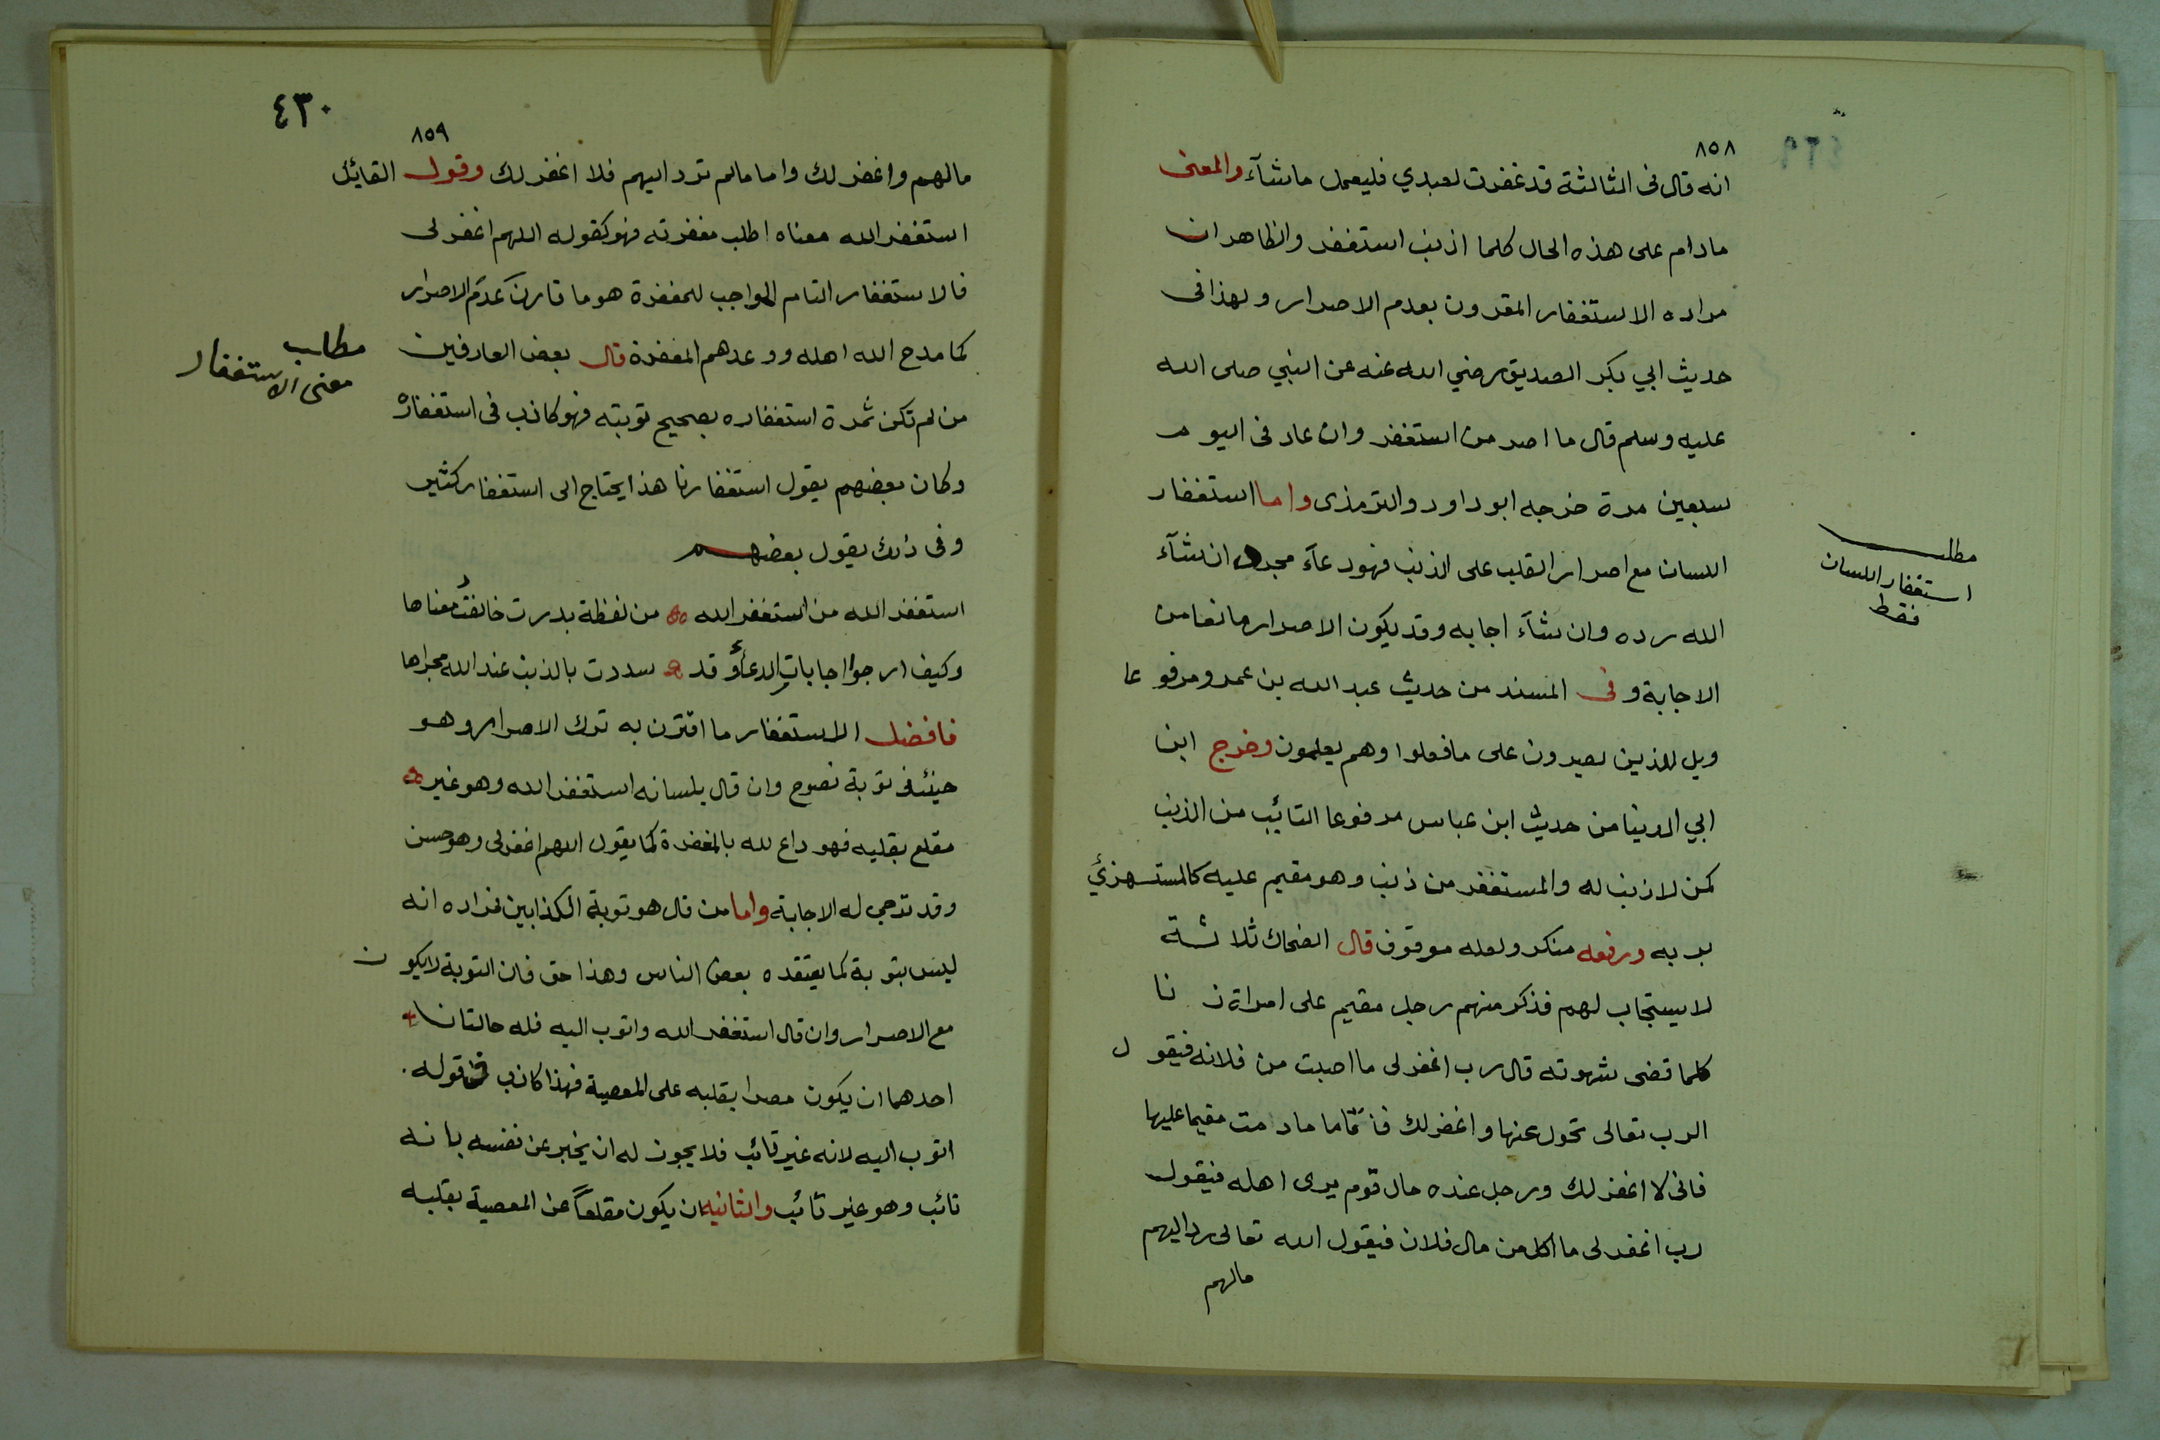 ٨٥٨
انه قال فى الثالثة قد غفرت لعبدي فليعمل ماشآء والمعنى
مادام على هذه الحال كلما اذنب استغفر والظاهر ان
مراده الاستغفار المقرون بعدم الاصرار ولهذا فى
حديث ابي بكر الصديق رضي الله عنه عن النبي صلى الله
عليه وسلم قال ما اصر من استغفر وان عاد فى اليوم
سبعين مرة خرجه ابو داود والترمذى واما استغفار
اللسان مع اصرار القلب على الذنب فهو دعآء مجرد ان شآء
الله رده وان شآء اجابه وقد يكون الاصرار مانعا من
الاجابة وفى المسند من حديث عبد الله بن عمرو مرفوعا
ويل للذين يصرون على ما فعلوا وهم يعلمون وخرج ابن
ابي الدنيا من حديث ابن عباس مرفوعا التائب من الذنب
كمن لا ذنب له والمستغفر من ذنب وهو مقيم عليه كالمستهزئ
بربه ورفعه منكر ولعله موقوف قال الضحاك ثلاثة
لا يستجاب لهم فذكر منهم رجل مقيم على امراة زنا
كلما قضى شهوته قال رب اغفر لى ما اصبت من فلانه فيقول
الرب تعالى تحول عنها واغفر لك فاما ما دمت مقيما عليها
فانى لا اغفر لك ورجل عنده مال قوم يرى اهله فيقول
رب اغفر لى ما اكل من مال فلان فيقول الله تعالى رد اليهم
مالهم
مطلب
استغفار اللسان
فقط
٤٣٠
٨٥٩
مالهم واغفر لك واما مالم ترد اليهم فلا اغفر لك وقول القايل
استغفر الله معناه اطلب مغفرته فهو كقوله اللهم اغفر لى
فالاستغفار التام الواجب للمغفرة هو ما قارن عدم الاصرار
كما مدح الله اهله ووعدهم المغفرة قال بعض العارفين
من لم تكن ثمرة استغفاره بصحيح توبته فهو كاذب فى استغفاره
وكان بعضهم يقول استغفارنا هذا يحتاج الى استغفار كثير
وفى ذلك يقول بعضهم
استغفر الله من استغفر الله من لفظة بدرت خالفتُ معناها
وكيف ارجوا اجابات الدعآء وقد سددت بالذنب عند الله مجراها
فافضل الاستغفار ما اقترن به ترك الاصرار وهو
حينئذ توبة نصوح وان قال بلسانه استغفر الله وهو غير
مقلع بقلبه فهو داع لله بالمغفرة كما يقول اللهم اغفر لى وهو حسن
وقد ترجى له الاجابة واما من قال هو توبة الكذابين فمراده انه
ليس بتوبة كما يعتقده بعض الناس وهذا حق فان التوبة لا يكون
مع الاصرار وان قال استغفر الله واتوب اليه فله حالتان
احدهما ان يكون مصرا بقلبه على المعصية فهذا كاذب فى قوله
اتوب اليه لانه غير تائب فلا يجوز له ان يخبر عن نفسه بانه
تائب وهو غير تائب والثانيه ان يكون مقلعاً عن المعصية بقلبه
مطلب
معنى الاستغفار